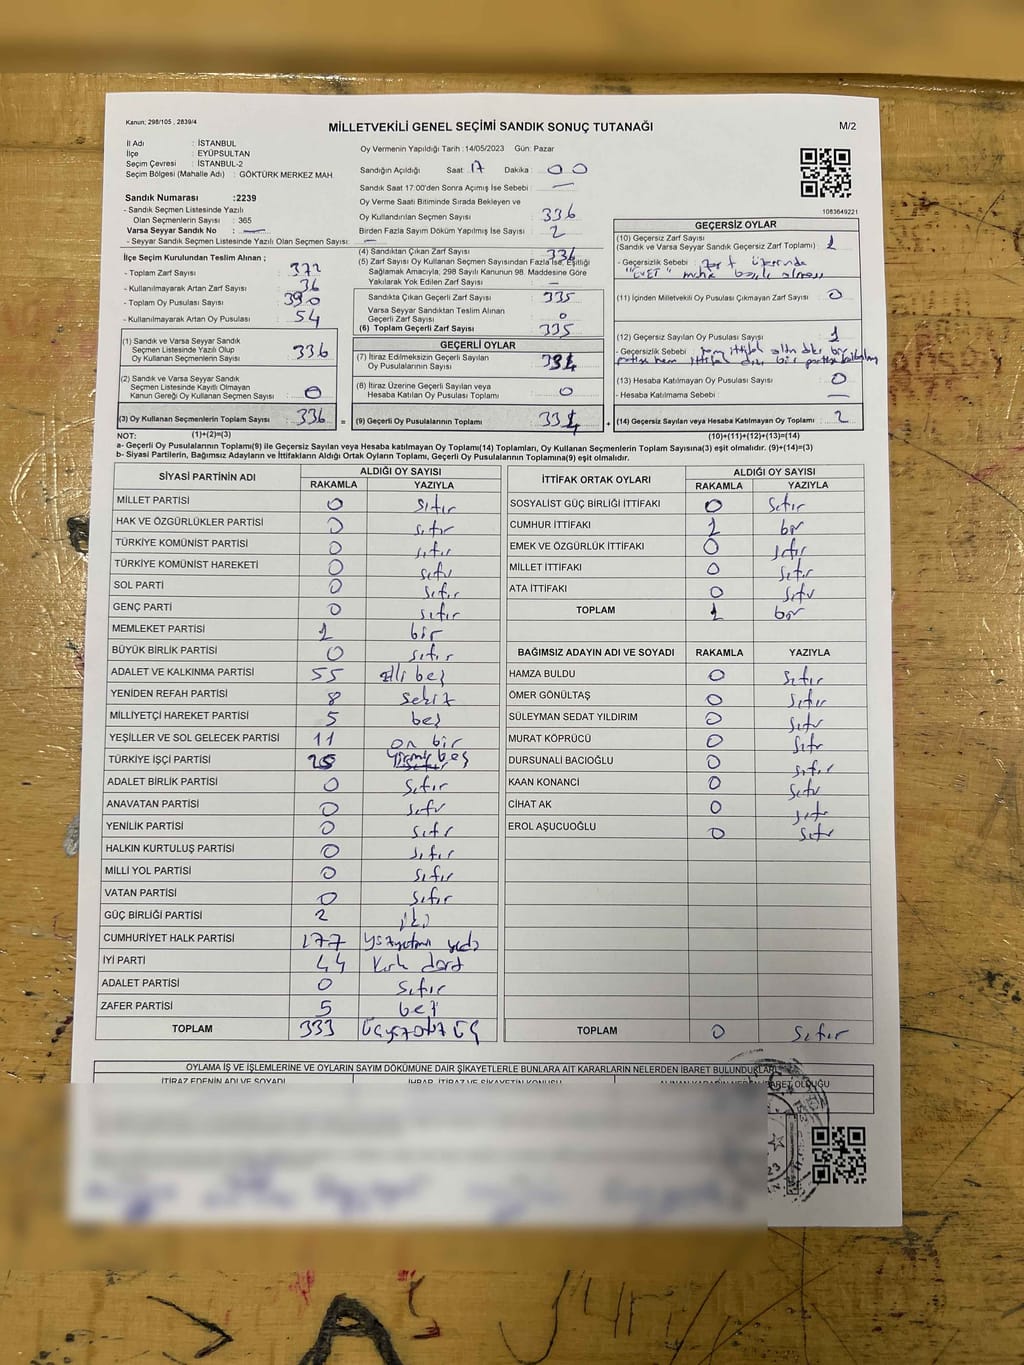 Kanun; 298/105 , 2839/4
MİLLETVEKİLİ GENEL SEÇİMİ SANDIK SONUÇ TUTANAĞI
M/2
İl Adı : İSTANBUL
İlçe : EYÜPSULTAN
Seçim Çevresi : İSTANBUL-2
Seçim Bölgesi (Mahalle Adı) : GÖKTÜRK MERKEZ MAH.
Sandık Numarası :2239
- Sandık Seçmen Listesinde Yazılı
Olan Seçmenlerin Sayısı : 365
Varsa Seyyar Sandık No : —
- Seyyar Sandık Seçmen Listesinde Yazılı Olan Seçmen Sayısı: —
İlçe Seçim Kurulundan Teslim Alınan ;
- Toplam Zarf Sayısı : 372
- Kullanılmayarak Artan Zarf Sayısı : 36
- Toplam Oy Pusulası Sayısı : 390
- Kullanılmayarak Artan Oy Pusulası : 54
(1) Sandık ve Varsa Seyyar Sandık
Seçmen Listesinde Yazılı Olup
Oy Kullanan Seçmenlerin Sayısı : 336
(2) Sandık ve Varsa Seyyar Sandık
Seçmen Listesinde Kayıtlı Olmayan
Kanun Gereği Oy Kullanan Seçmen Sayısı : 0
(3) Oy Kullanan Seçmenlerin Toplam Sayısı : 336
(1)+(2)=(3)
Oy Vermenin Yapıldığı Tarih :14/05/2023 Gün: Pazar
Sandığın Açıldığı Saat : 17 Dakika : 00
Sandık Saat 17:00'den Sonra Açımış İse Sebebi : —
Oy Verme Saati Bitiminde Sırada Bekleyen ve
Oy Kullandırılan Seçmen Sayısı : 336
Birden Fazla Sayım Döküm Yapılmış İse Sayısı : 2
(4) Sandıktan Çıkan Zarf Sayısı : 336
(5) Zarf Sayısı Oy Kullanan Seçmen Sayısından Fazla İse, Eşitliği
Sağlamak Amacıyla, 298 Sayılı Kanunun 98. Maddesine Göre
Yakılarak Yok Edilen Zarf Sayısı : —
Sandıkta Çıkan Geçerli Zarf Sayısı : 335
Varsa Seyyar Sandıktan Teslim Alınan
Geçerli Zarf Sayısı : 0
(6) Toplam Geçerli Zarf Sayısı : 335
GEÇERLİ OYLAR
(7) İtiraz Edilmeksizin Geçerli Sayılan
Oy Pusulalarının Sayısı : 334
(8) İtiraz Üzerine Geçerli Sayılan veya
Hesaba Katılan Oy Pusulası Toplamı : 0
= (9) Geçerli Oy Pusulalarının Toplamı : 334 +
1083649221
GEÇERSİZ OYLAR
(10) Geçersiz Zarf Sayısı
(Sandık ve Varsa Seyyar Sandık Geçersiz Zarf Toplamı) : 1
- Geçersizlik Sebebi : zarf üzerinde
"EVET" mührü basılı olması
(11) İçinden Milletvekili Oy Pusulası Çıkmayan Zarf Sayısı : 0
(12) Geçersiz Sayılan Oy Pusulası Sayısı : 1
- Geçersizlik Sebebi : hem ittifak bir
partiye hem ittifak dışı bir partiye
(13) Hesaba Katılmayan Oy Pusulası Sayısı : 0
- Hesaba Katılmama Sebebi : —
(14) Geçersiz Sayılan veya Hesaba Katılmayan Oy Toplamı : 2
(10)+(11)+(12)+(13)=(14)
NOT:
a- Geçerli Oy Pusulalarının Toplamı(9) ile Geçersiz Sayılan veya Hesaba katılmayan Oy Toplamı(14) Toplamları, Oy Kullanan Seçmenlerin Toplam Sayısına(3) eşit olmalıdır. (9)+(14)=(3)
b- Siyasi Partilerin, Bağımsız Adayların ve İttifakların Aldığı Ortak Oyların Toplamı, Geçerli Oy Pusulalarının Toplamına(9) eşit olmalıdır.
SİYASİ PARTİNİN ADI ALDIĞI OY SAYISI
RAKAMLA YAZIYLA
MİLLET PARTİSİ 0 sıfır
HAK VE ÖZGÜRLÜKLER PARTİSİ 0 sıfır
TÜRKİYE KOMÜNİST PARTİSİ 0 sıfır
TÜRKİYE KOMÜNİST HAREKETİ 0 sıfır
SOL PARTİ 0 sıfır
GENÇ PARTİ 0 sıfır
MEMLEKET PARTİSİ 1 bir
BÜYÜK BİRLİK PARTİSİ 0 sıfır
ADALET VE KALKINMA PARTİSİ 55 elli beş
YENİDEN REFAH PARTİSİ 8 sekiz
MİLLİYETÇİ HAREKET PARTİSİ 5 beş
YEŞİLLER VE SOL GELECEK PARTİSİ 11 on bir
TÜRKİYE İŞÇİ PARTİSİ 25 yirmi beş
ADALET BİRLİK PARTİSİ 0 sıfır
ANAVATAN PARTİSİ 0 sıfır
YENİLİK PARTİSİ 0 sıfır
HALKIN KURTULUŞ PARTİSİ 0 sıfır
MİLLİ YOL PARTİSİ 0 sıfır
VATAN PARTİSİ 0 sıfır
GÜÇ BİRLİĞİ PARTİSİ 2 iki
CUMHURİYET HALK PARTİSİ 177 yüzyetmiş yedi
İYİ PARTİ 44 kırk dört
ADALET PARTİSİ 0 sıfır
ZAFER PARTİSİ 5 beş
TOPLAM 333 üçyüzotuz üç
İTTİFAK ORTAK OYLARI ALDIĞI OY SAYISI
RAKAMLA YAZIYLA
SOSYALİST GÜÇ BİRLİĞİ İTTİFAKI 0 sıfır
CUMHUR İTTİFAKI 1 bir
EMEK VE ÖZGÜRLÜK İTTİFAKI 0 sıfır
MİLLET İTTİFAKI 0 sıfır
ATA İTTİFAKI 0 sıfır
TOPLAM 1 bir
BAĞIMSIZ ADAYIN ADI VE SOYADI RAKAMLA YAZIYLA
HAMZA BULDU 0 sıfır
ÖMER GÖNÜLTAŞ 0 sıfır
SÜLEYMAN SEDAT YILDIRIM 0 sıfır
MURAT KÖPRÜCÜ 0 sıfır
DURSUNALİ BACIOĞLU 0 sıfır
KAAN KONANCİ 0 sıfır
CİHAT AK 0 sıfır
EROL AŞUCUOĞLU 0 sıfır
TOPLAM 0 sıfır
OYLAMA İŞ VE İŞLEMLERİNE VE OYLARIN SAYIM DÖKÜMÜNE DAİR ŞİKAYETLERLE BUNLARA AİT KARARLARIN NELERDEN İBARET BULUNDUKLARI
İTİRAZ EDENİN ADI VE SOYADI İHBAR, İTİRAZ VE ŞİKAYETİN KONUSU ALINAN KARARIN NEDEN İBARET OLDUĞU